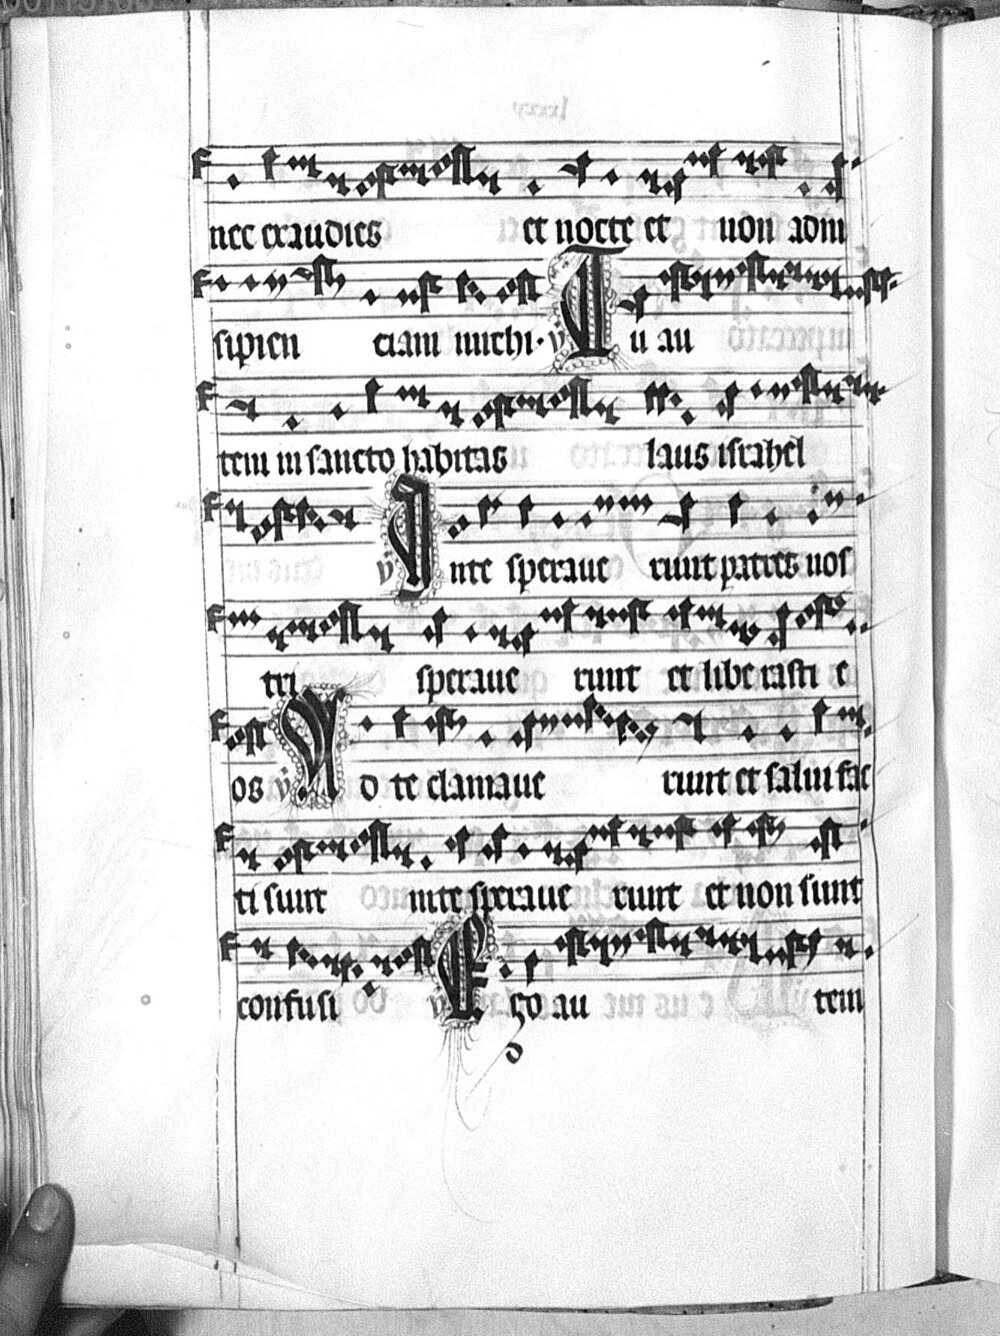 nec exaudies et nocte et non ad in
sipien ciam michi · v̄ Tu au
tem in sancto habitas laus israhel
v̄ In te sperave runt patres nos
tri sperave runt et libe rasti e
os v̄ Ad te clamave runt et salvi fac
ti sunt in te sperave runt et non sunt
confusi v̄ Ego au tem